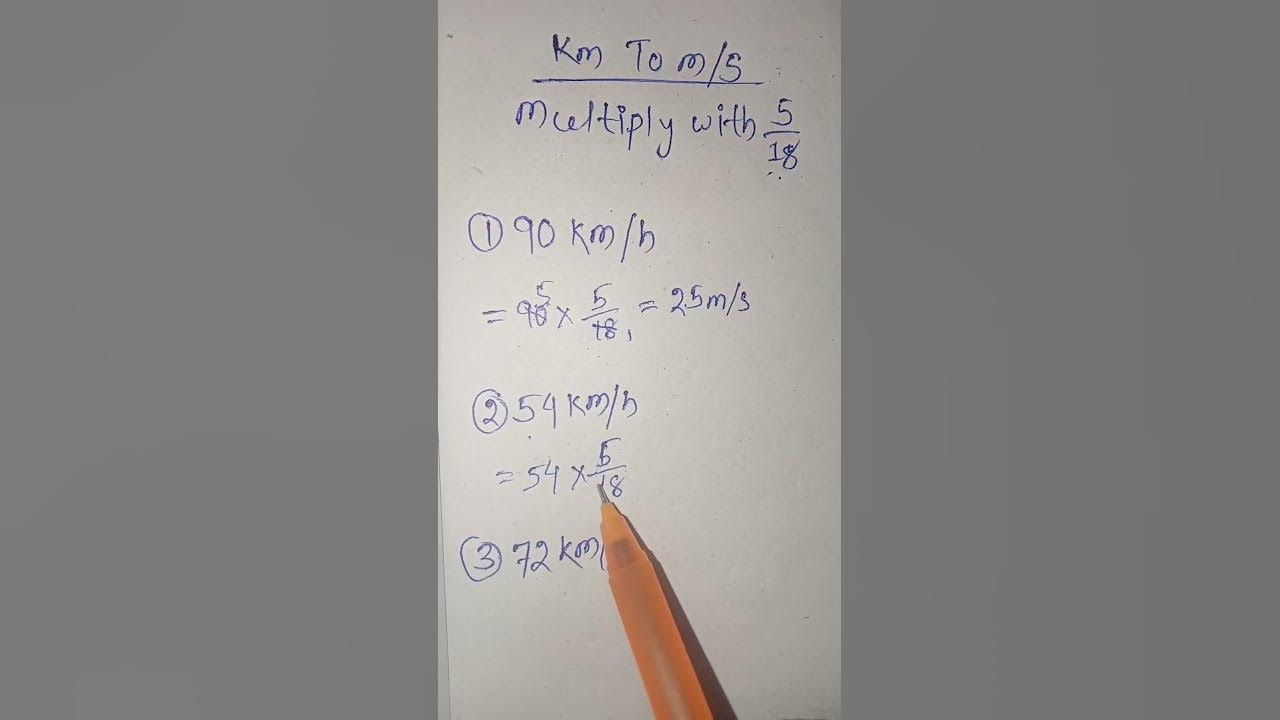 Km To m/s
Multiply with 5/18
① 90 km/h
= 90 5 × 5/18 1 = 25 m/s
② 54 km/h
= 54 × 5/18
③ 72 km/